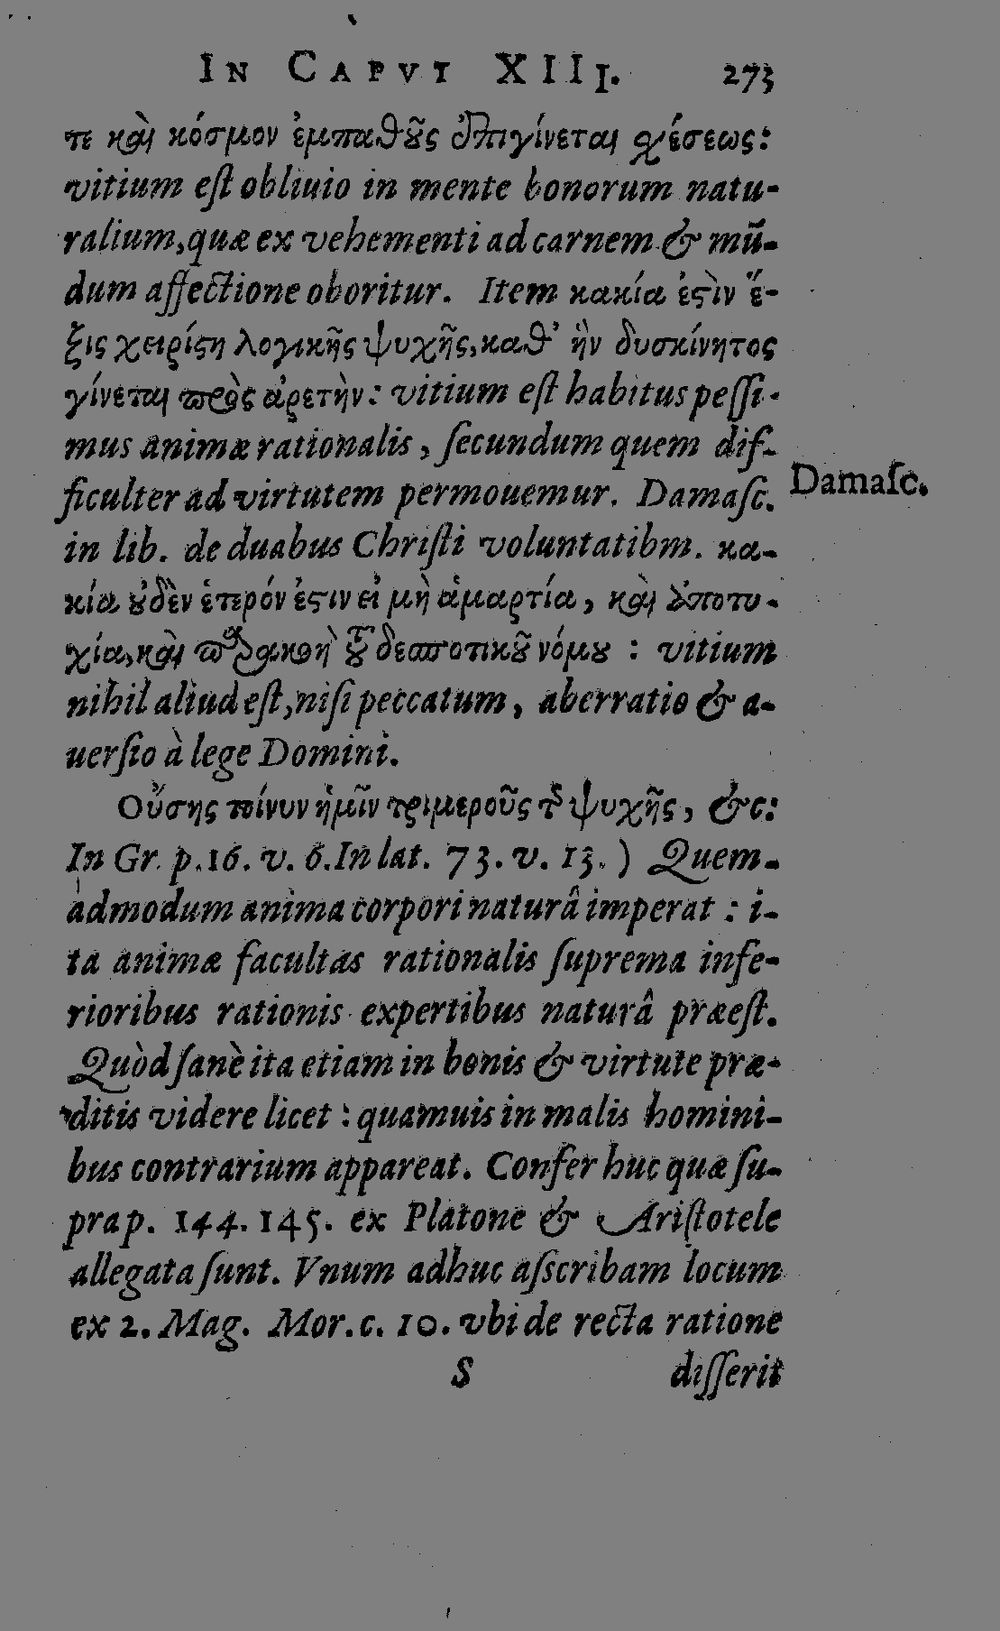 IN CAPVT XIIJ. 273
τε καὶ κόσμον ἐμπαθοῦς ἐπιγίνεται σχέσεως:
vitium eſt obliuio in mente bonorum natu-
ralium, quæ ex vehementi ad carnem & mũ-
dum affectione oboritur. Item κακία ἐςὶν ἕ-
ξις χειρίςη λογικῆς ψυχῆς, καθ' ἣν δυσκίνητος
γίνεται πρὸς ἀρετὴν: vitium eſt habitus peſſi-
mus animæ rationalis, ſecundum quem dif-
ficulter ad virtutem permouemur. Damaſc.
Damaſc.
in lib. de duabus Chriſti voluntatibm. κα-
κία οὐδὲν ἑτερόν ἐςιν εἰ μὴ ἁμαρτία, καὶ ἀποτυ-
χία, καὶ παρακοὴ τοῦ δεσποτικοῦ νόμου: vitium
nihil aliud eſt, niſi peccatum, aberratio & a-
uerſio à lege Domini.
Οὔσης τοίνυν ἡμῖν τριμεροῦς τῆς ψυχῆς, &c:
In Gr. p. 16. v. 6. In lat. 73. v. 13.) Quem-
admodum anima corpori naturâ imperat: i-
ta animæ facultas rationalis ſuprema infe-
rioribus rationis expertibus naturâ præeſt.
Quòd ſanè ita etiam in bonis & virtute præ-
ditis videre licet: quamuis in malis homini-
bus contrarium appareat. Confer huc quæ ſu-
pra p. 144. 145. ex Platone & Ariſtotele
allegata ſunt. Vnum adhuc aſscribam locum
ex 2. Mag. Mor. c. 10. vbi de recta ratione
S diſſerit